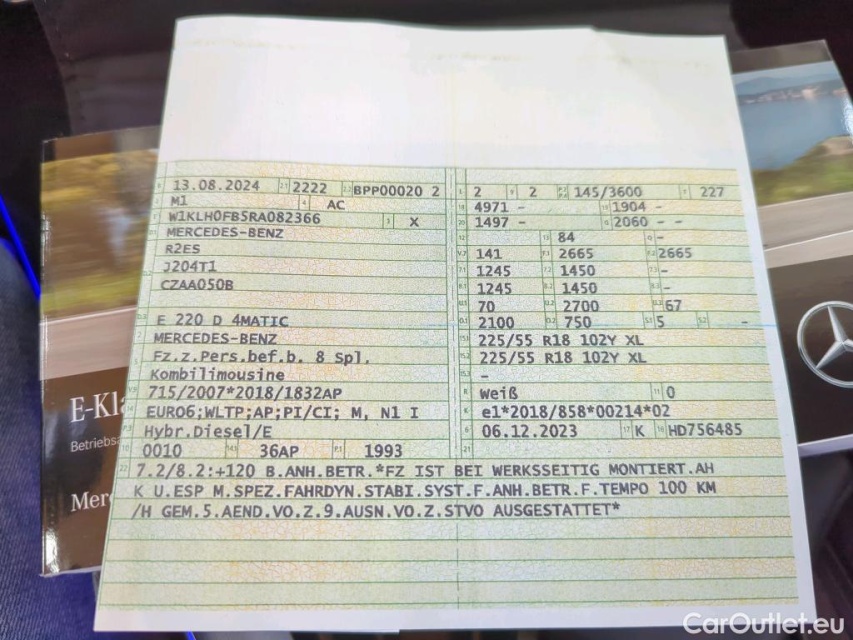 13.08.2024 2222 BPP00020 2
M1 AC
W1KLH0FB5RA082366 X
MERCEDES-BENZ
R2ES
J204T1
CZAA050B
E 220 D 4MATIC
MERCEDES-BENZ
Fz.z.Pers.bef.b. 8 Spl.
Kombilimousine
715/2007*2018/1832AP
EURO6;WLTP;AP;PI/CI; M, N1 I
Hybr.Diesel/E
0010 36AP 1993
2 2 145/3600 227
4971 - 1904 -
1497 - 2060 - -
84 -
141 2665 2665
1245 1450 -
1245 1450 -
70 2700 67
2100 750 5 -
225/55 R18 102Y XL
225/55 R18 102Y XL
-
weiß 0
e1*2018/858*00214*02
06.12.2023 K HD756485
7.2/8.2:+120 B.ANH.BETR.*FZ IST BEI WERKSSEITIG MONTIERT.AH
K U.ESP M.SPEZ.FAHRDYN.STABI.SYST.F.ANH.BETR.F.TEMPO 100 KM
/H GEM.5.AEND.VO.Z.9.AUSN.VO.Z.STVO AUSGESTATTET*
E-Kla
Betriebsa
Merc
CarOutlet.eu